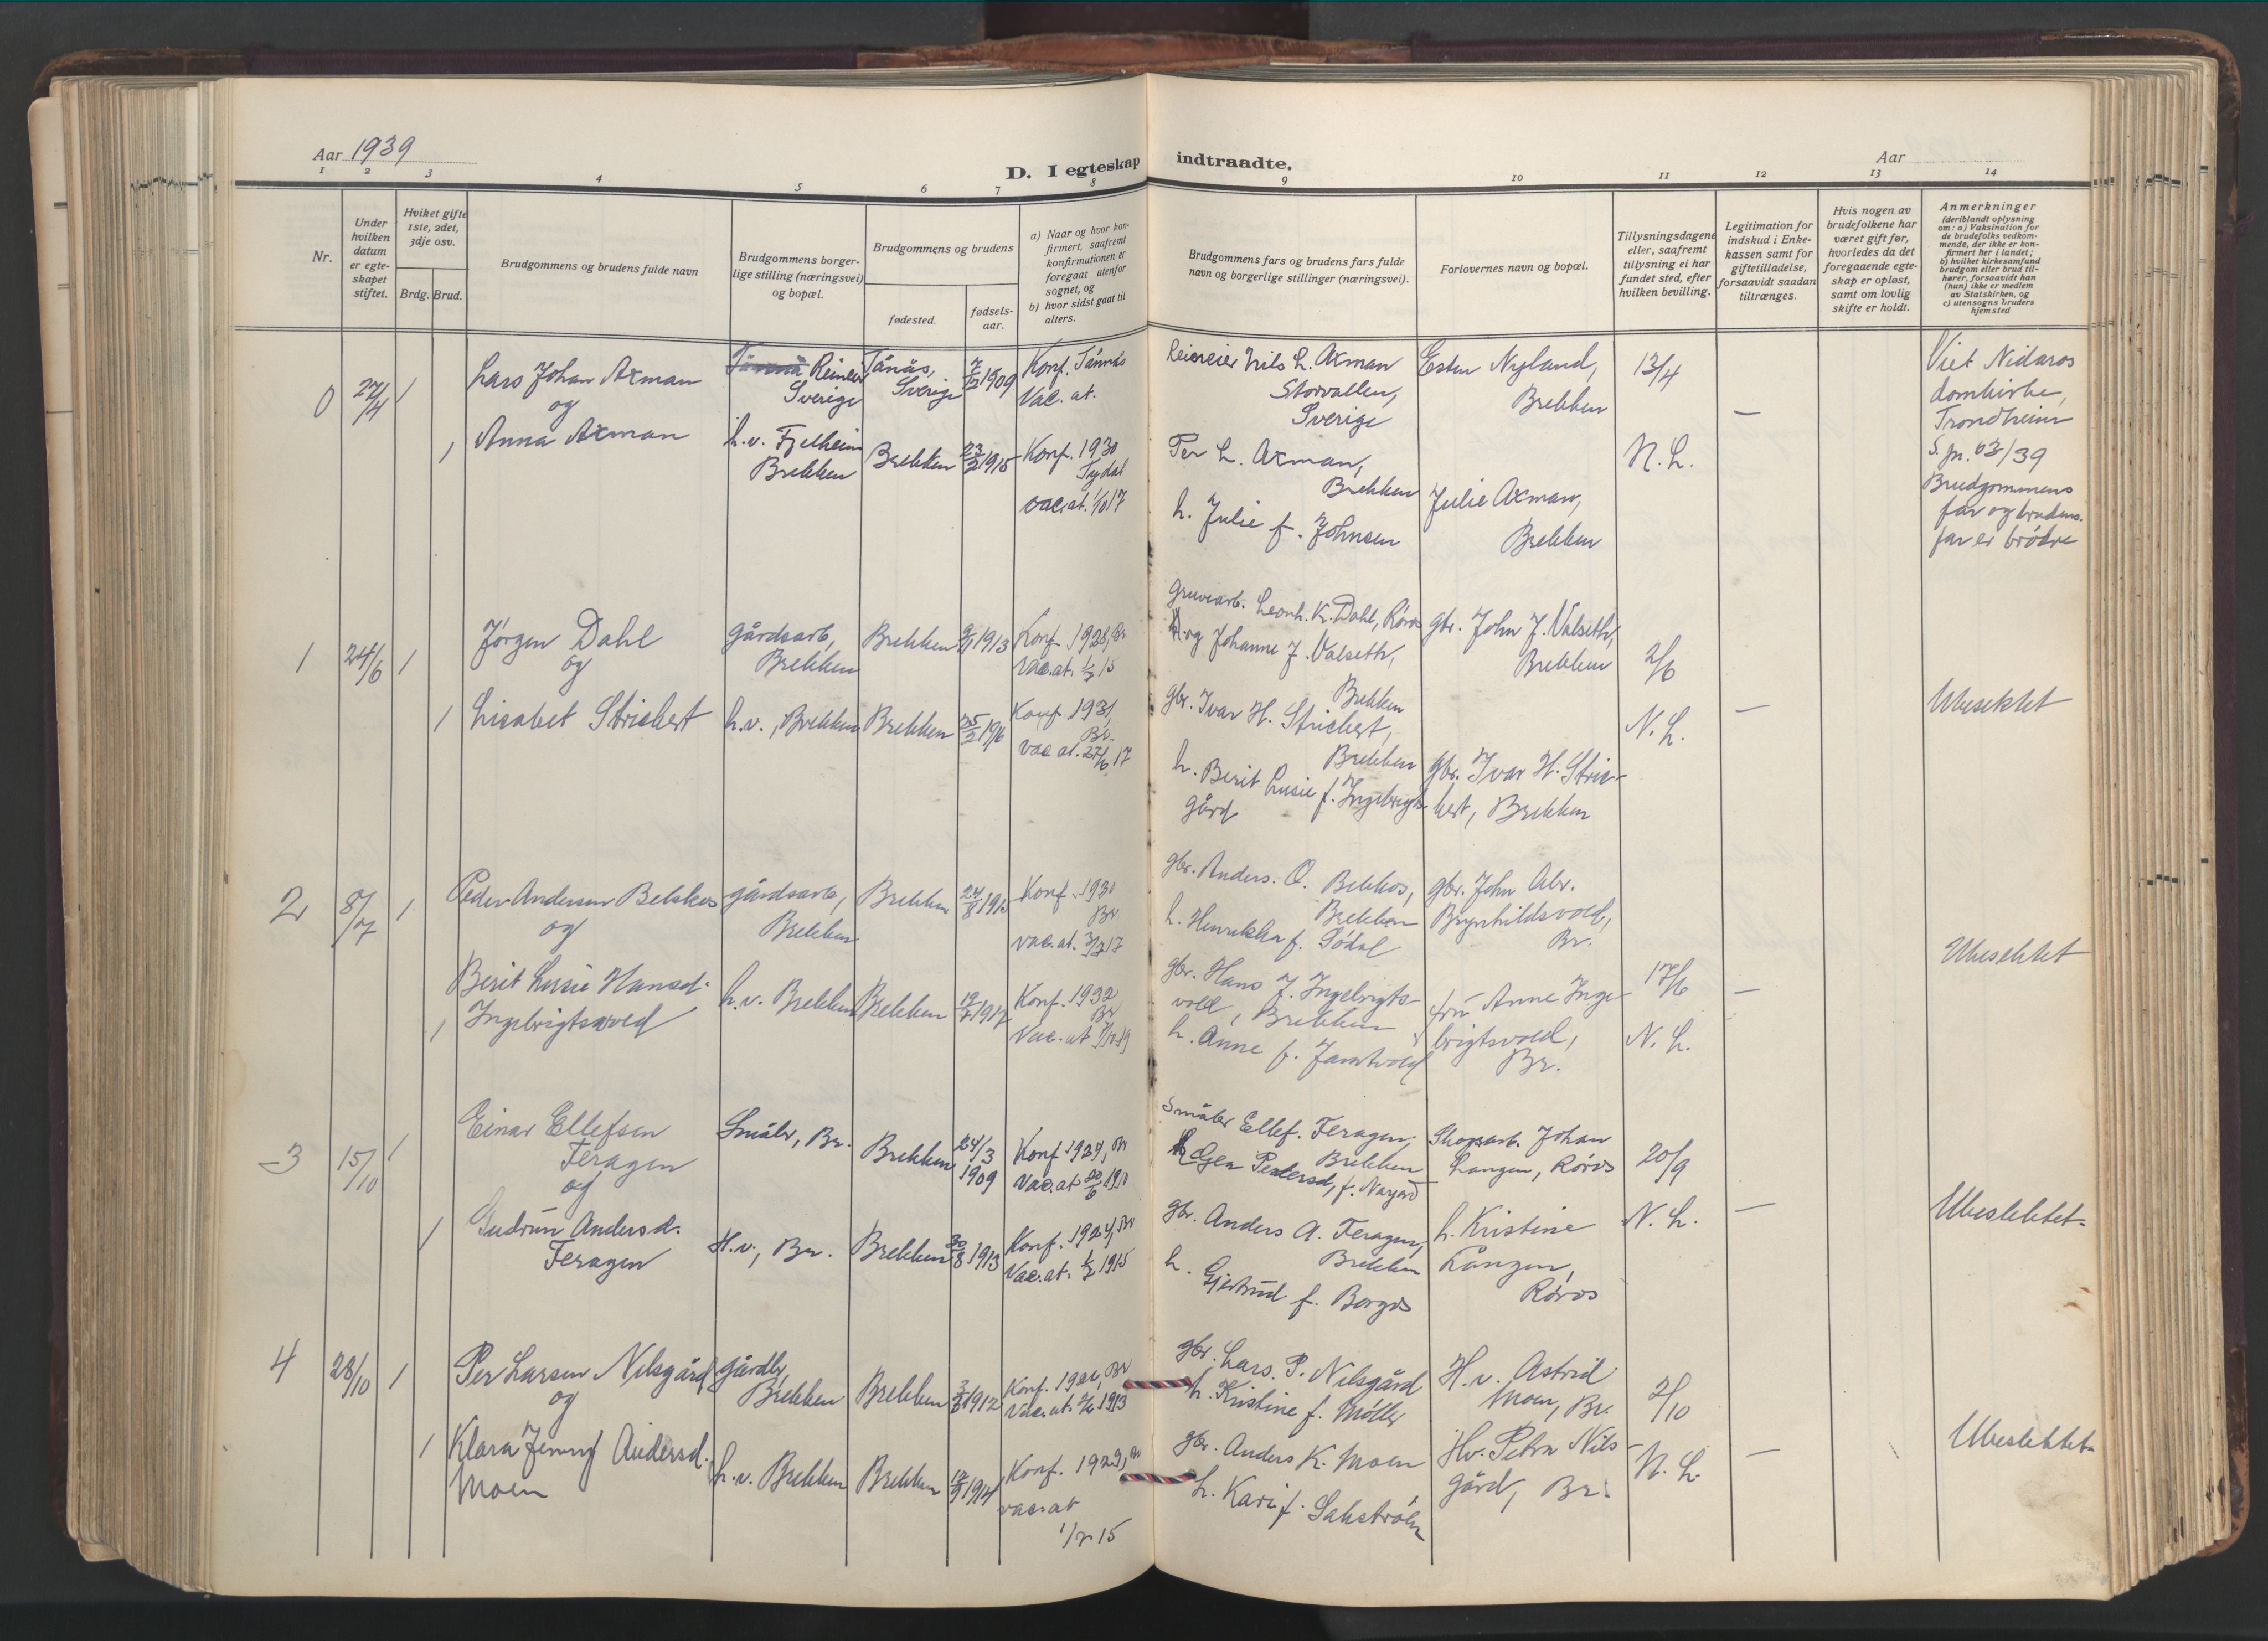 Aar 1939
D. I egteskap indtraadte.
Aar
1 2 3 4 5 6 7 8 9 10 11 12 13 14
Nr.
Under hvilken datum er egteskapet stiftet.
Hviket gifte 1ste, 2det, 3dje osv.
Brdg. Brud.
Brudgommens og brudens fulde navn
Brudgommens borgerlige stilling (næringsvei) og bopæl.
Brudgommens og brudens
fødested.
fødselsaar.
a) Naar og hvor konfirmert, saafremt konfirmationen er foregaat utenfor sognet, og
b) hvor sidst gaat til alters.
Brudgommens fars og brudens fars fulde navn og borgerlige stillinger (næringsvei).
Forlovernes navn og bopæl.
Tillysningsdagene eller, saafremt tillysning ei har fundet sted, efter hvilken bevilling.
Legitimation for indskud i Enkekassen samt for giftetilladelse, forsaavidt saadan tiltrænges.
Hvis nogen av brudefolkene har været gift før, hvorledes da det foregaaende egteskap er opløst, samt om lovlig skifte er holdt.
Anmerkninger
(deriblandt oplysning om: a) Vaksination for de brudefolks vedkommende, der ikke er konfirmert her i landet; b) hvilket kirkesamfund brudgom eller brud tilhører, forsaavidt han (hun) ikke er medlem av Statskirken, og c) utensogns bruders hjemsted
0
27/4
1
Lars Johan Axman
og
1
Anna Axman
Reineier
Sverige
h.v. Fjelheim
Brekken
Tänäs,
Sverige
1909
Brekken
23/2 1915
Konf. Tännäs
Vac. at.
Konf. 1930
Tydal
vac. at. 1/10 17
Reineier Nils L. Axman
Storvallen,
Sverige
Per L. Axman,
Brekken
h. Julie f. Johnsen
Ester Nyland,
Brekken
Julie Axman,
Brekken
13/4
N. L.
—
Viet Nidaros
domkirke,
Trondheim
S. jn. 63/39
Brudgommens
far og brudens
far er brödre
1
24/6
1
Jørgen Dahl
og
1
Lisabet Strickert
gårdsarb,
Brekken
h.v., Brekken
Brekken
1913
Brekken
25/2 1916
Konf. 1928, Br
Vac. at. 1/7 15
Konf. 1931
Br.
vac. at. 27/6 17
gruvearb. Leonh. K. Dahl, Røros
og Johanne J. Valseth,
Brekken
gbr. Ivar H. Strickert,
Brekken
h. Berit Lusie f. Ingebrigts-
gård
gbr. John J. Valseth,
Brekken
gbr. Ivar H. Stric-
kert, Brekken
2/6
N. L.
—
Ubeslektet
2
8/7
1
Peder Andersen Bekkos
og
Berit Lusie Hansd.
1
Ingebrigtsvold
gårdsarb,
Brekken
h.v. Brekken
Brekken
24/8 1915
Brekken
12/7 1917
Konf. 1931
Br
vac. at. 3/7 17
Konf. 1932
Br
Vac. at
gbr. Anders. O. Bekkos,
Brekken
h. Henrikka f. Södal
gbr. Hans J. Ingebrigts-
vold, Brekken
h. Anne f. Jamtvold
gbr. John Abr.
Brynhildsvold,
Br.
fru Anne Inge-
brigtsvold,
Br.
17/6
N. L.
—
Ubeslektet
3
15/10
1
Einar Ellefsen
Feragen
og
1
Gudrun Andersd.
Feragen
Småbr, Br.
H.v., Br.
Brekken
24/3
1909
Brekken
30/8 1913
Konf. 1924, Br
Vac. at 20/6 1910
Konf. 1927, Br
Vac. at. 1/7 1915
småbr Ellef. Feragen,
Brekken
Pedersd, f. Nygård
gbr. Anders A. Feragen,
Brekken
h. Gjertrud f. Borgos
Skogsarb. Johan
Langen, Røros
h. Kristine
Langen,
Røros
20/9
N. L.
—
Ubeslektet
4
28/10
1
Per Larsen Nilsgård
og
1
Klara Jenny Andersd.
Moen
gårdbr,
Brekken
h.v. Brekken
Brekken
1912
Brekken
12/9 1914
Konf. 1926, Br
Vac. at. 1913
Konf. 1929, Br
vac. at
1/7 15
gbr. Lars. P. Nilsgård
h. Kristine f. Møller
gbr. Anders K. Moen
h. Kari f. Sakström
H.v. Astrid
Moen, Br.
Hv. Petra Nils-
gård, Br.
2/10
N. L.
—
Ubeslektet